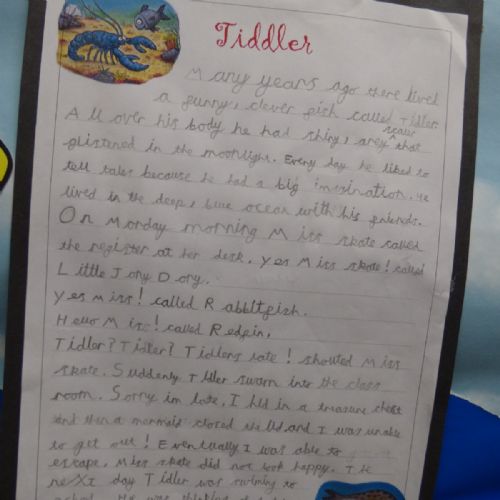 Tiddler
Many years ago there lived
a funny, clever fish called Tidller
scales
All over his body he had shiny, grey ^ that
glistened in the moonlight. Every day he liked to
tell tales because he had a big imination. He
lived in the deep, blue ocean with his friends.
On Monday morning Miss skate called
the register at her desk. Yes Miss skate! called
Little Jony Dory.
Yes Miss! called Rabbitfish.
Hello Miss! called Redfin.
Tidler? Tidler? Tidlers late! shouted Miss
skate. Suddenly Tidler swam into the class
room. Sorry im late. I hid in a treasure chest
and then a mermaid closed the lid and I was unable
to get out! Eventually I was able to
escape. Miss skate did not look happy. TH
neXt day Tidler was swiming to